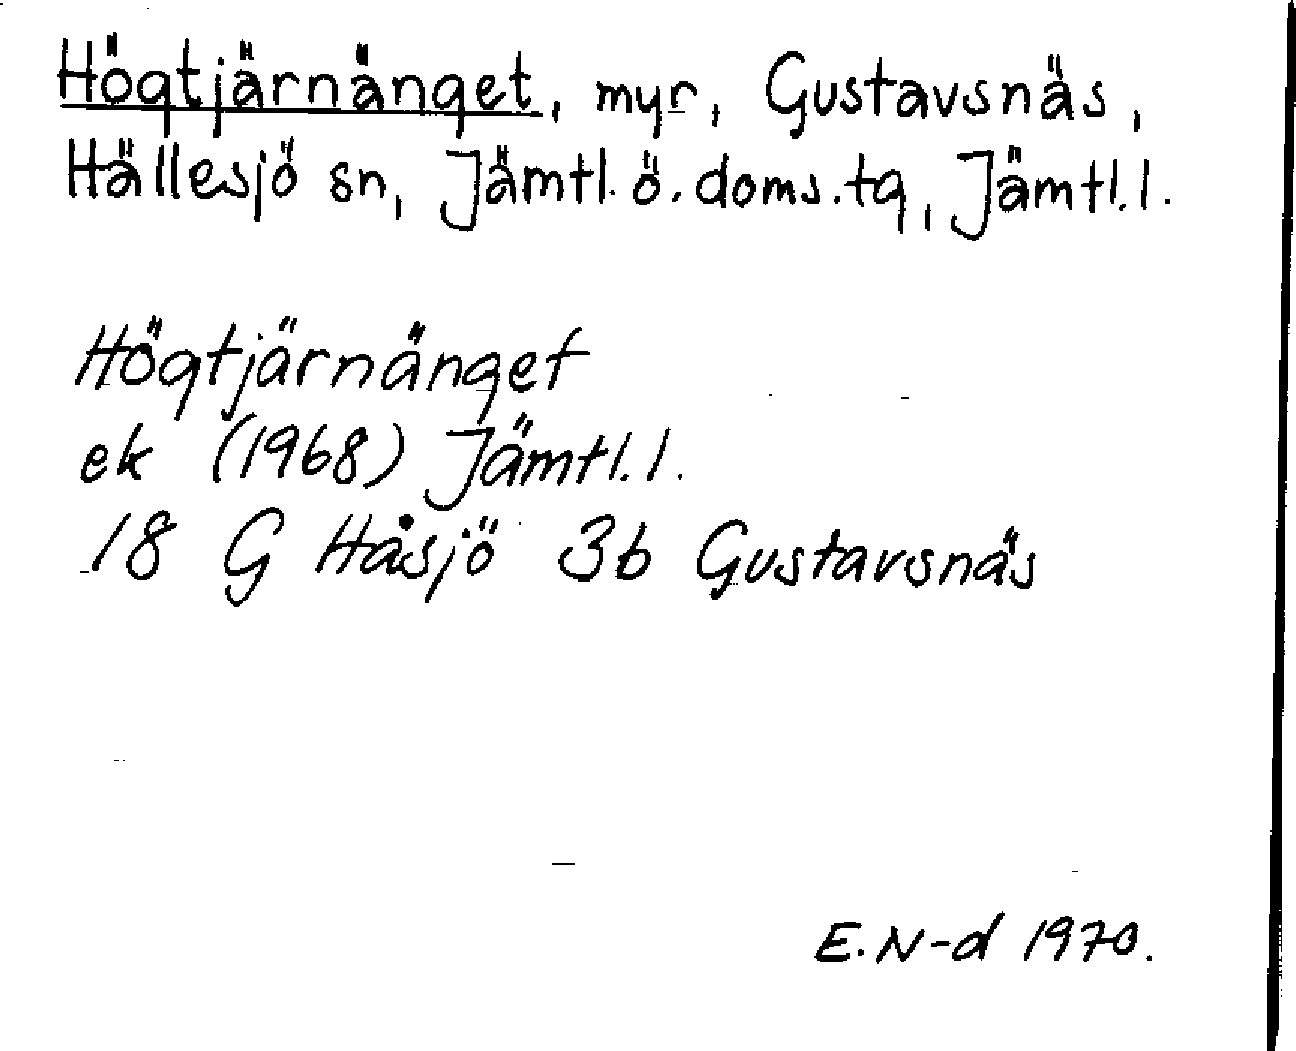 Högtjärnänget, myr, Gustavsnäs,
Hällesjö sn, Jämtl. ö. doms.tg, Jämtl.l.
Högtjärnänget
ek (1968) Jämtl.l.
18 G Håsjö 3b Gustavsnäs
E.N-d 1970.